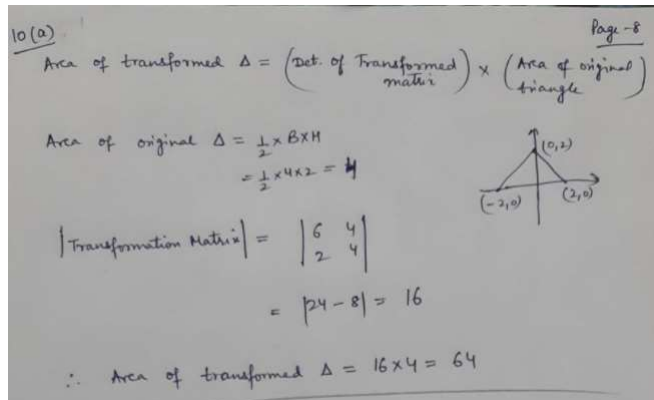 10(a)
Page-8
Area of transformed Δ = (Det. of Transformed matri) × (Area of original triangle)
Area of original Δ = 1/2 × B×H
= 1/2 × 4×2 = 4
(0,2)
(-2,0)
(2,0)
|Transformation Matrix| = |6 4
2 4|
= |24-8| = 16
∴ Area of transformed Δ = 16×4 = 64